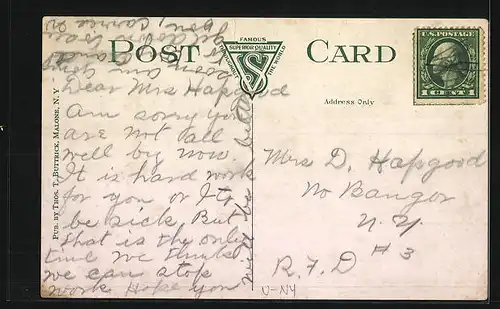 POST CARD
FAMOUS
SUPERIOR QUALITY
THROUGHOUT THE WORLD
U.S. POSTAGE
1 CENT 1
Address Only
PUB. BY THOS. T. BUTTRICK, MALONE, N. Y.
Dear Mrs Hapgood
Am sorry you
are not all
well by now.
It is hard work
for you or I to
be sick. But
that is the only
time we think
we can stop
work. Hope you
will be
Mrs D. Hapgood
No Bangor
N. Y.
R. F. D #3
U-NY